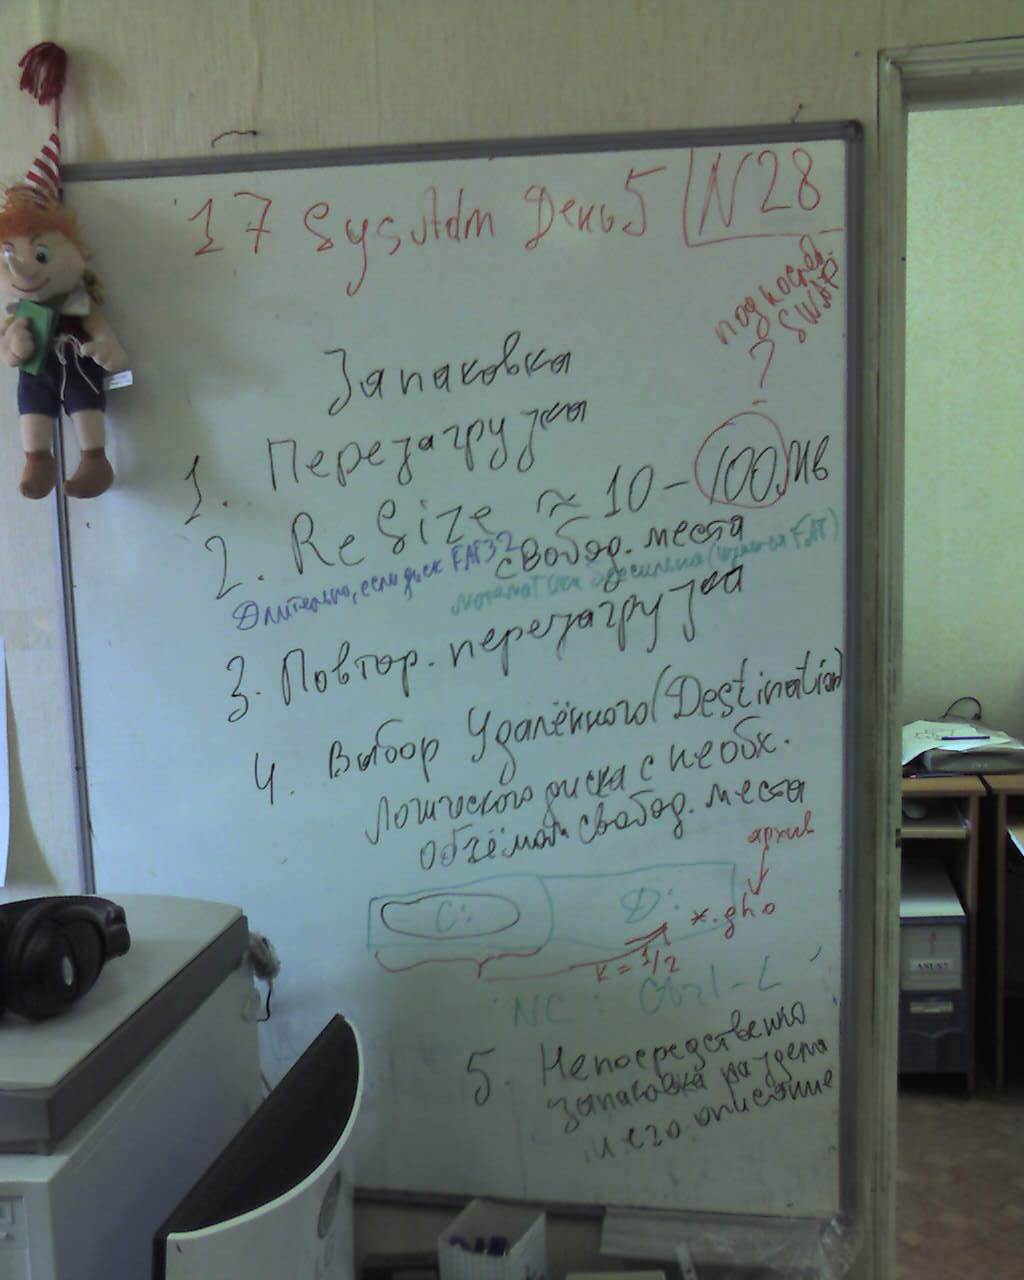 17 SysAdm День 5 N28
под
SWAP
?
Запаковка
1. Перезагрузка
2. ReSize ≈ 10 - 100 Мб
свобод. места
Длительно, если диск FAT32
3. Повтор. перезагрузка
4. Выбор Удалённого (Destination)
Логического диска с необх.
объёмом свобод. места
архив
C: D: *.gho
K = 1/2
NC: Ctrl-L
5. Непосредственно
запаковка раздела
и его описание
ASUS